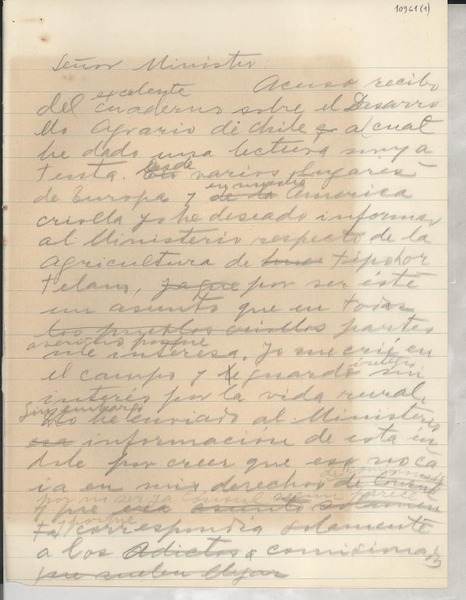 10961(1)
Señor Ministro
Acuso recibo
del excelente cuaderno sobre el Desarro
llo Agrario de Chile al cual
he dado una lectura muy a
tenta. Desde varios lugares
de Europa y en nuestra America
criolla yo he deseado informar
al Ministerio respecto de la
agricultura de tipo hor
telano, ya que por ser éste
un asunto que en todas
los pueblos criollos partes
averiguo porque
me interesa. Yo me crié en
el campo y le guardo
interés por la vida rural.
Sin embargo
No he enviado al Ministerio
información de esta ín
dole por creer que eso no ca
ía en mis derechos de Consul
por no ser ya Consul
y que era asunto solamen
te corresponder solamente
a los Adictos comisionados
que suelen llegar